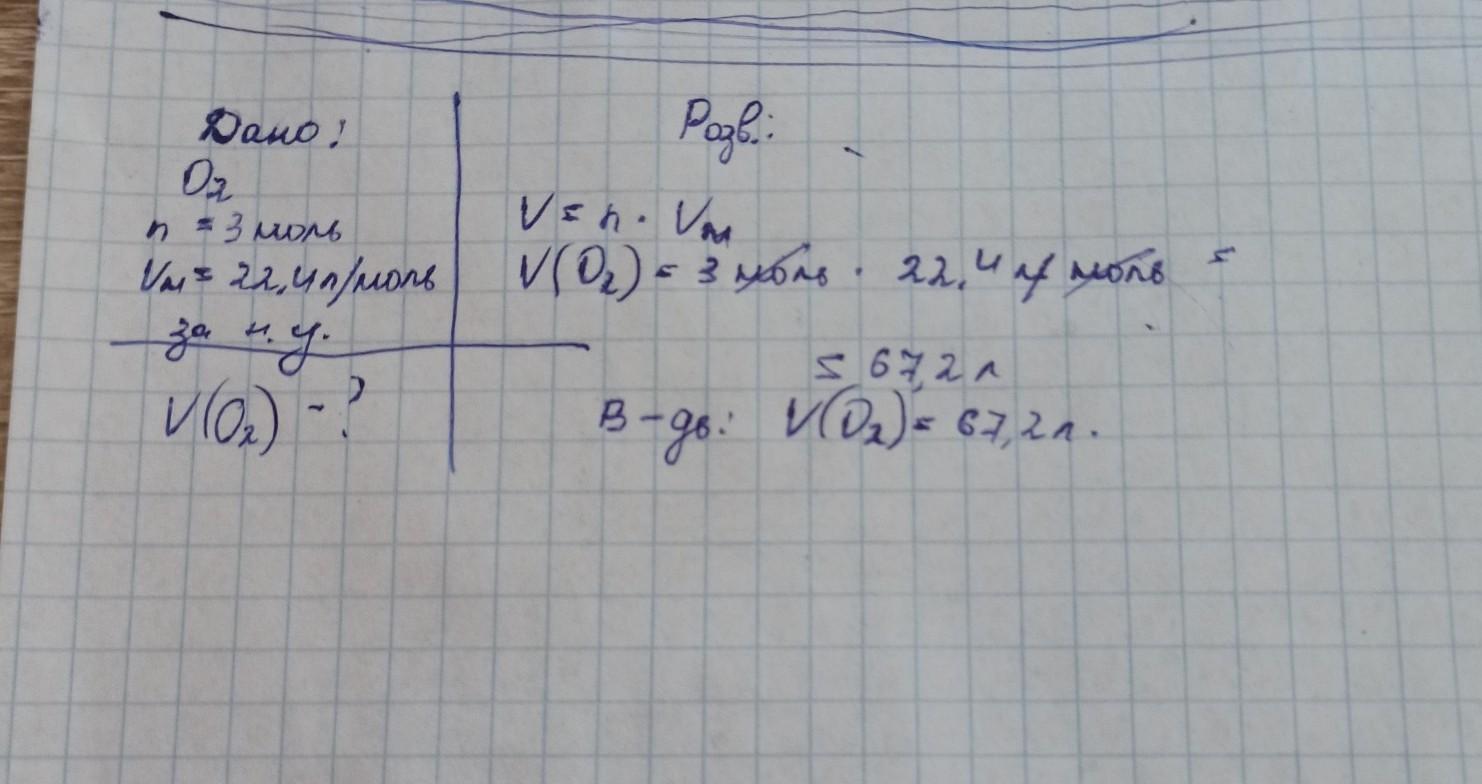 Дано:
O₂
n = 3 моль
Vм = 22,4 л/моль
за н.у.
V(O₂) - ?
Розв.:
V = n · Vм
V(O₂) = 3 моль · 22,4 л/моль =
= 67,2 л
В-дь: V(O₂) = 67,2 л.